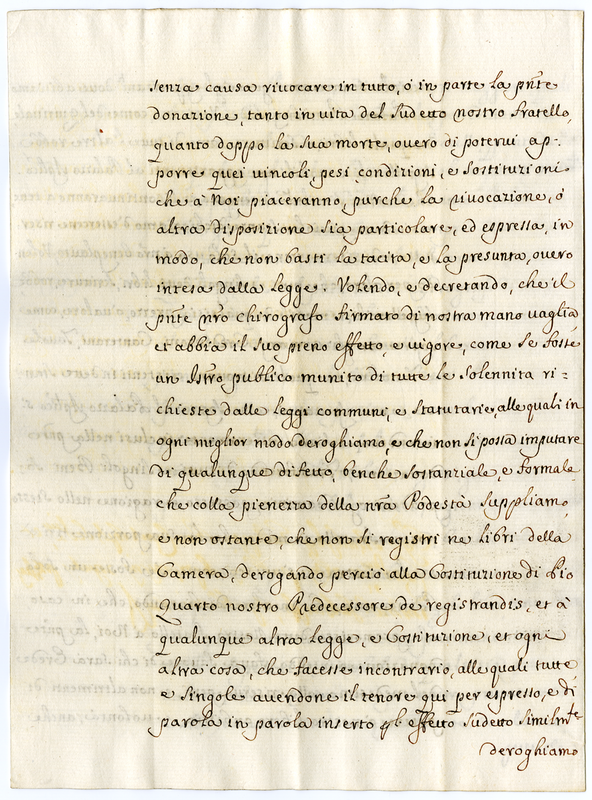 senza causa rivocare in tutto, ò in parte la pnte
donazione, tanto in vita del sudetto nostro fratello,
quanto doppo la sua morte, overo di potervi ap-
porre quei vincoli, pesi, condizioni, e sostituzioni
che à Noi piaceranno, purche la rivocazione, ò
altra disposizione sia particolare, ed espressa, in
modo, che non basti la tacita, e la presunta, overo
intesa dalla legge. Volendo, e decretando, che il
pnte nro chirografo firmato di nostra mano vaglia
et abbia il suo pieno effetto, e vigore, come se fosse
un Istro publico munito di tutte le solennita ri=
chieste dalle leggi communi, e statutarie, alle quali in
ogni miglior modo deroghiamo, e che non si possa imputare
di qualunque difetto, benche sostanziale, e formale
che colla pienezza della nra Podestà suppliamo,
e non ostante, che non si registri ne libri della
Camera, derogando perciò alla Costituzione di Pio
Quarto nostro Predecessore de registrandis, et à
qualunque altra legge, e Costituzione, et ogni
altra cosa, che facesse incontrario, alle quali tutte
e singole avendone il tenore qui per espresso, e di
parola in parola inserto effetto sudetto similmte
deroghiamo